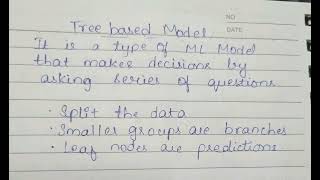 Tree based Model
NO
DATE
It is a type of ML Model
that makes decisions by
asking series of questions
· Split the data
· Smaller groups are branches
· Leaf nodes are predictions